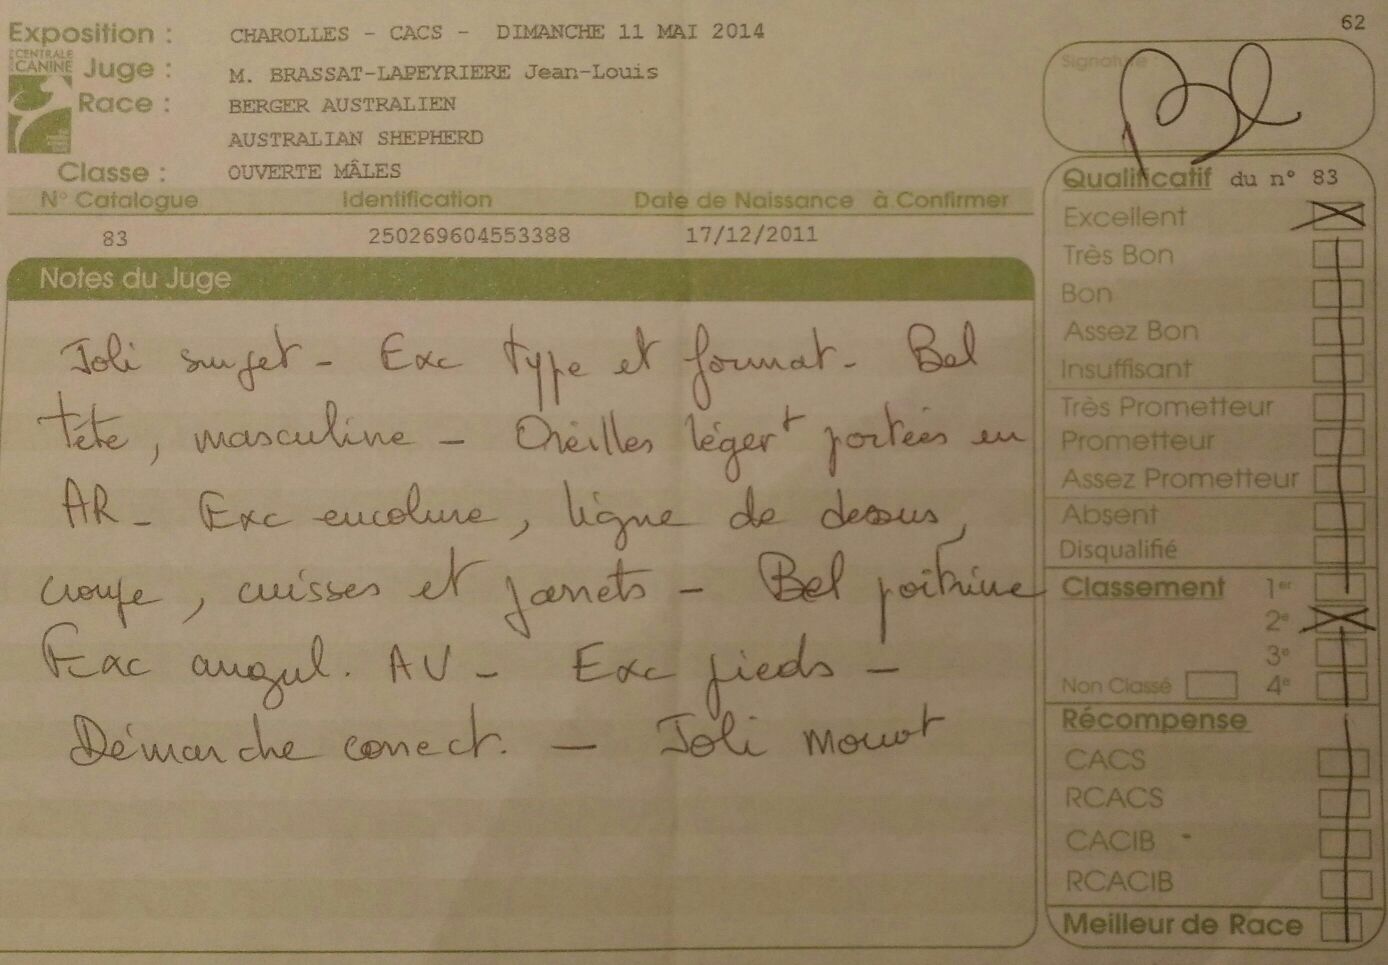 62
Exposition : CHAROLLES - CACS - DIMANCHE 11 MAI 2014
CENTRALE
CANINE
Juge : M. BRASSAT-LAPEYRIERE Jean-Louis
Race : BERGER AUSTRALIEN
AUSTRALIAN SHEPHERD
Classe : OUVERTE MÂLES
N° Catalogue Identification Date de Naissance à Confirmer
83 250269604553388 17/12/2011
Notes du Juge
Joli sujet - Exc type et format - Bel
tête, masculine - Oreilles léger^t portées en
AR - Exc encolure, ligne de dessus,
croupe, cuisses et jarrets - Bel poitrine
Exc angul. AV - Exc pieds -
Démarche correct. - Joli mouvt
Signature :
Qualificatif du n° 83
Excellent
Très Bon
Bon
Assez Bon
Insuffisant
Très Prometteur
Prometteur
Assez Prometteur
Absent
Disqualifié
Classement 1er
2e
3e
Non Classé 4e
Récompense
CACS
RCACS
CACIB -
RCACIB
Meilleur de Race